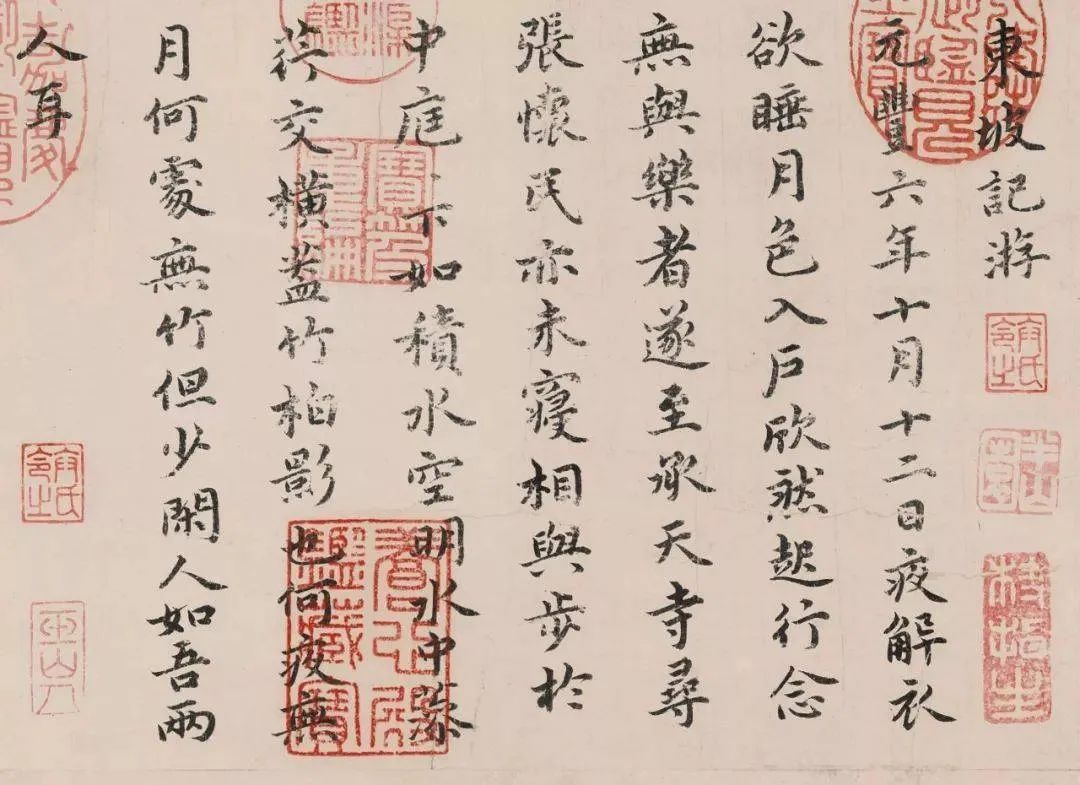 東坡記游
元豐六年十月十二日夜解衣
欲睡月色入戶欣然起行念
無與樂者遂至承天寺尋
張懷民亦未寢相與步於
中庭〻下如積水空明水中藻
荇交橫蓋竹柏影也何夜無
月何處無竹但少閑人如吾兩
人耳
寶笈重編
養心殿鑑藏寶